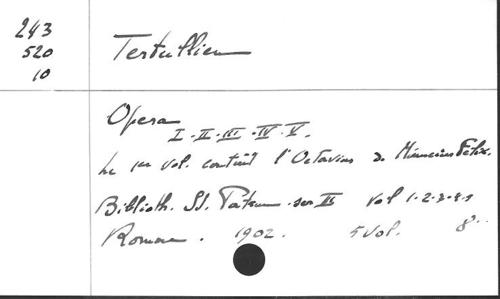 243
520
10
Tertullien
Opera
I-II-III-IV-V.
Le 1er vol. contient l'Octavius de Minucius Félix.
Biblioth. SS. Patrum. ser III vol 1-2-3-4-5
Romae. 1902. 5 vol. 8..